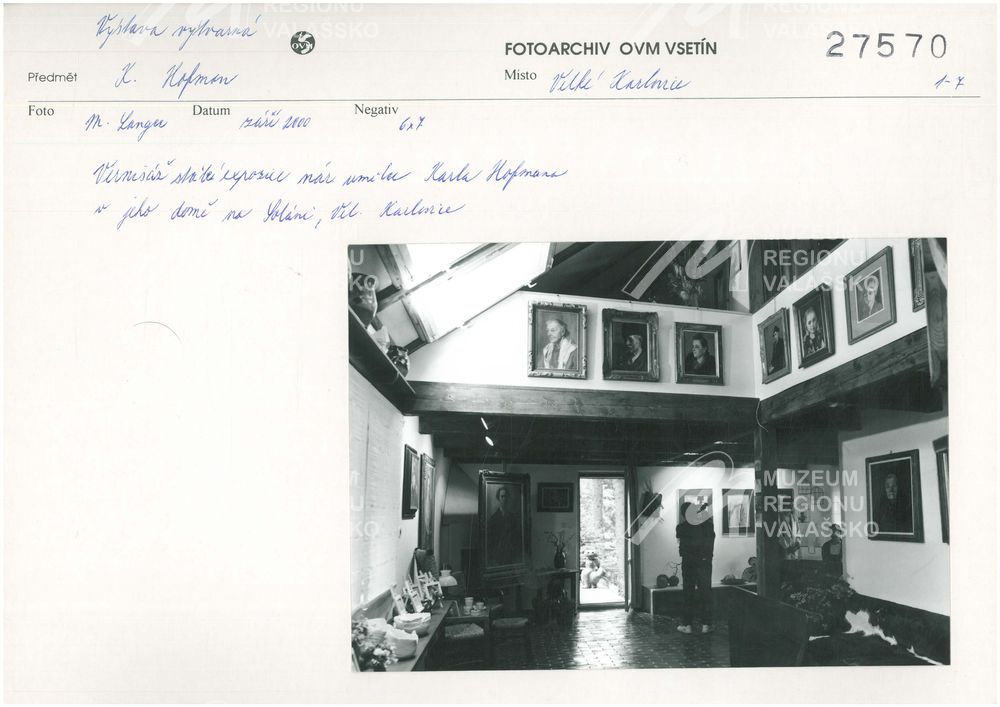 Výstava výtvarná
OVM
FOTOARCHIV OVM VSETÍN
27570
Předmět K. Hofman
Místo Velké Karlovice 1-7
Foto M. Langer Datum září 2000 Negativ 6x7
Vernisáž stálé expozice nár. umělce Karla Hofmana
v jeho domě na Soláni, Vel. Karlovice
MUZEUM
REGIONU
VALAŠSKO